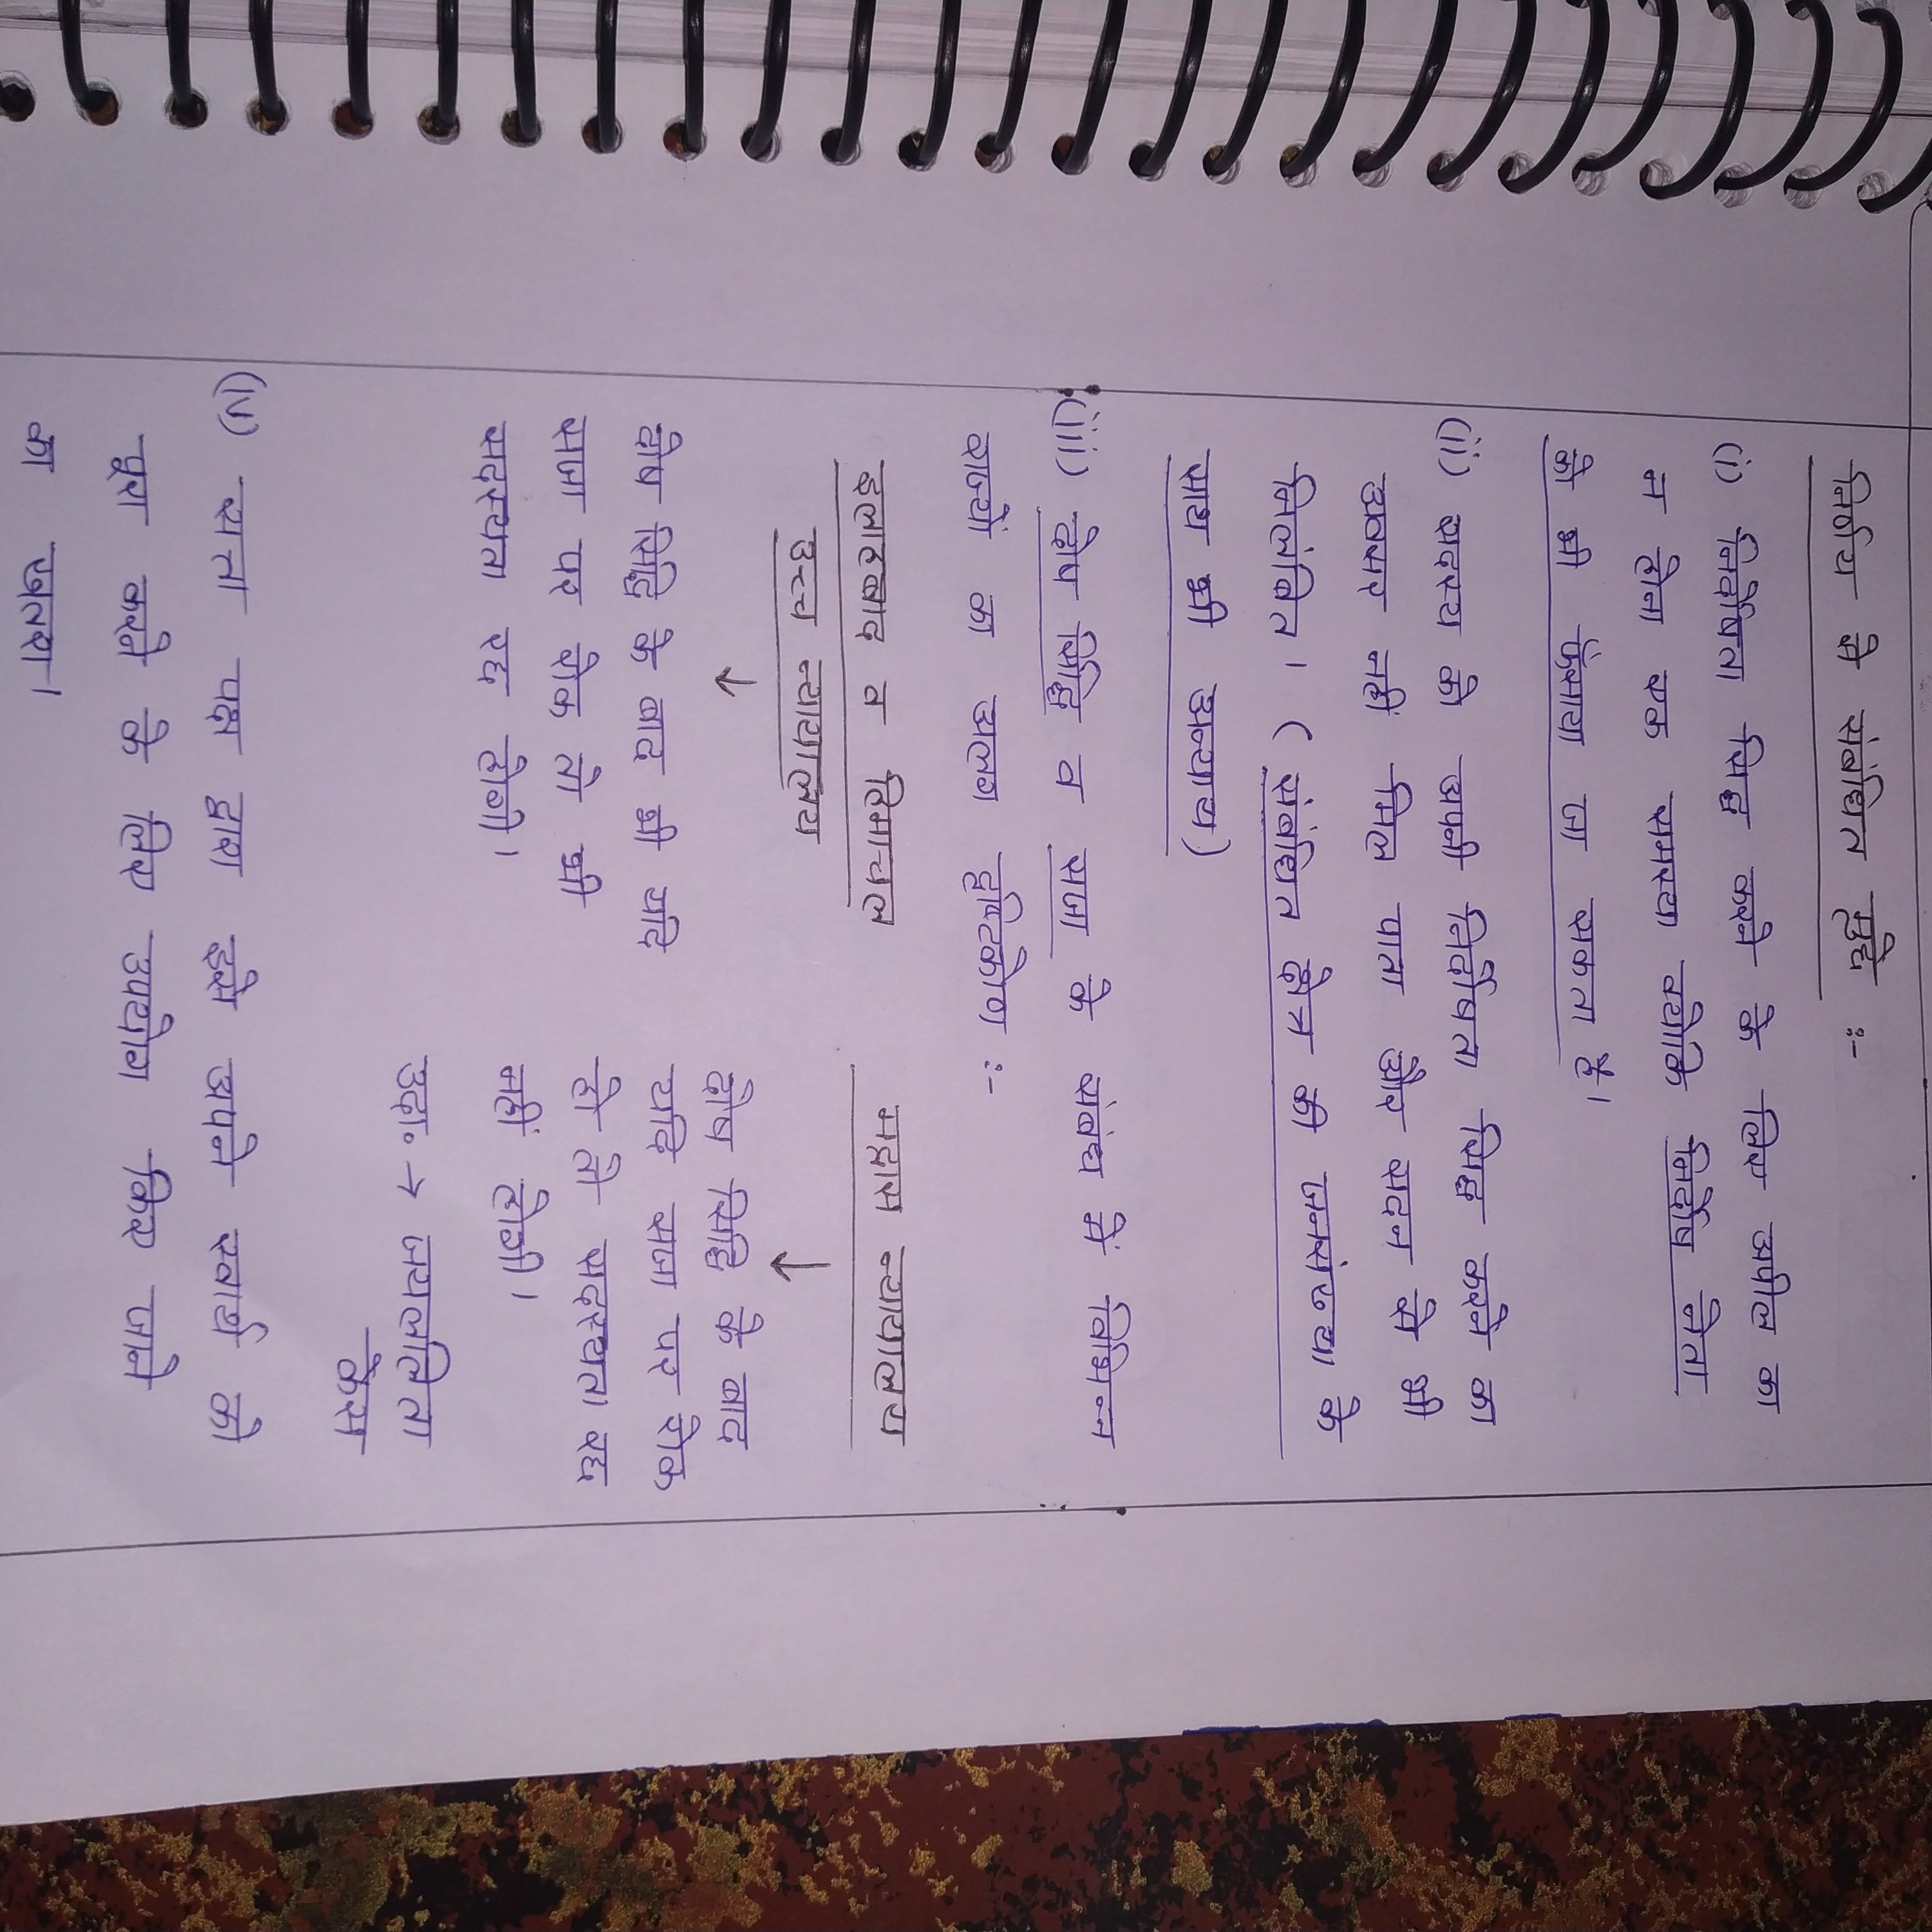 निर्णय से संबंधित मुद्दे :-
(i) निर्दोषता सिद्ध करने के लिए अपील का
न होना एक समस्या क्योंकि निर्दोष नेता
को भी फंसाया जा सकता है।
(ii) सदस्य को अपनी निर्दोषता सिद्ध करने का
अवसर नहीं मिल पाता और सदन से भी
निलंबित। (संबंधित क्षेत्र की जनसंख्या के
साथ भी अन्याय)
(iii) दोष सिद्धि व सजा के संबंध में विभिन्न
राज्यों का अलग दृष्टिकोण :-
इलाहबाद व हिमाचल
उच्च न्यायालय
↓
दोष सिद्धि के बाद भी यदि
सजा पर रोक तो भी
सदस्यता रद्द होगी।
मद्रास न्यायालय
↓
दोष सिद्धि के बाद
यदि सजा पर रोक
हो तो सदस्यता रद्द
नहीं होगी।
उदा. → जयललिता
केस
(iv) सत्ता पक्ष द्वारा इसे अपने स्वार्थ को
पूरा करने के लिए उपयोग किए जाने
का खतरा।